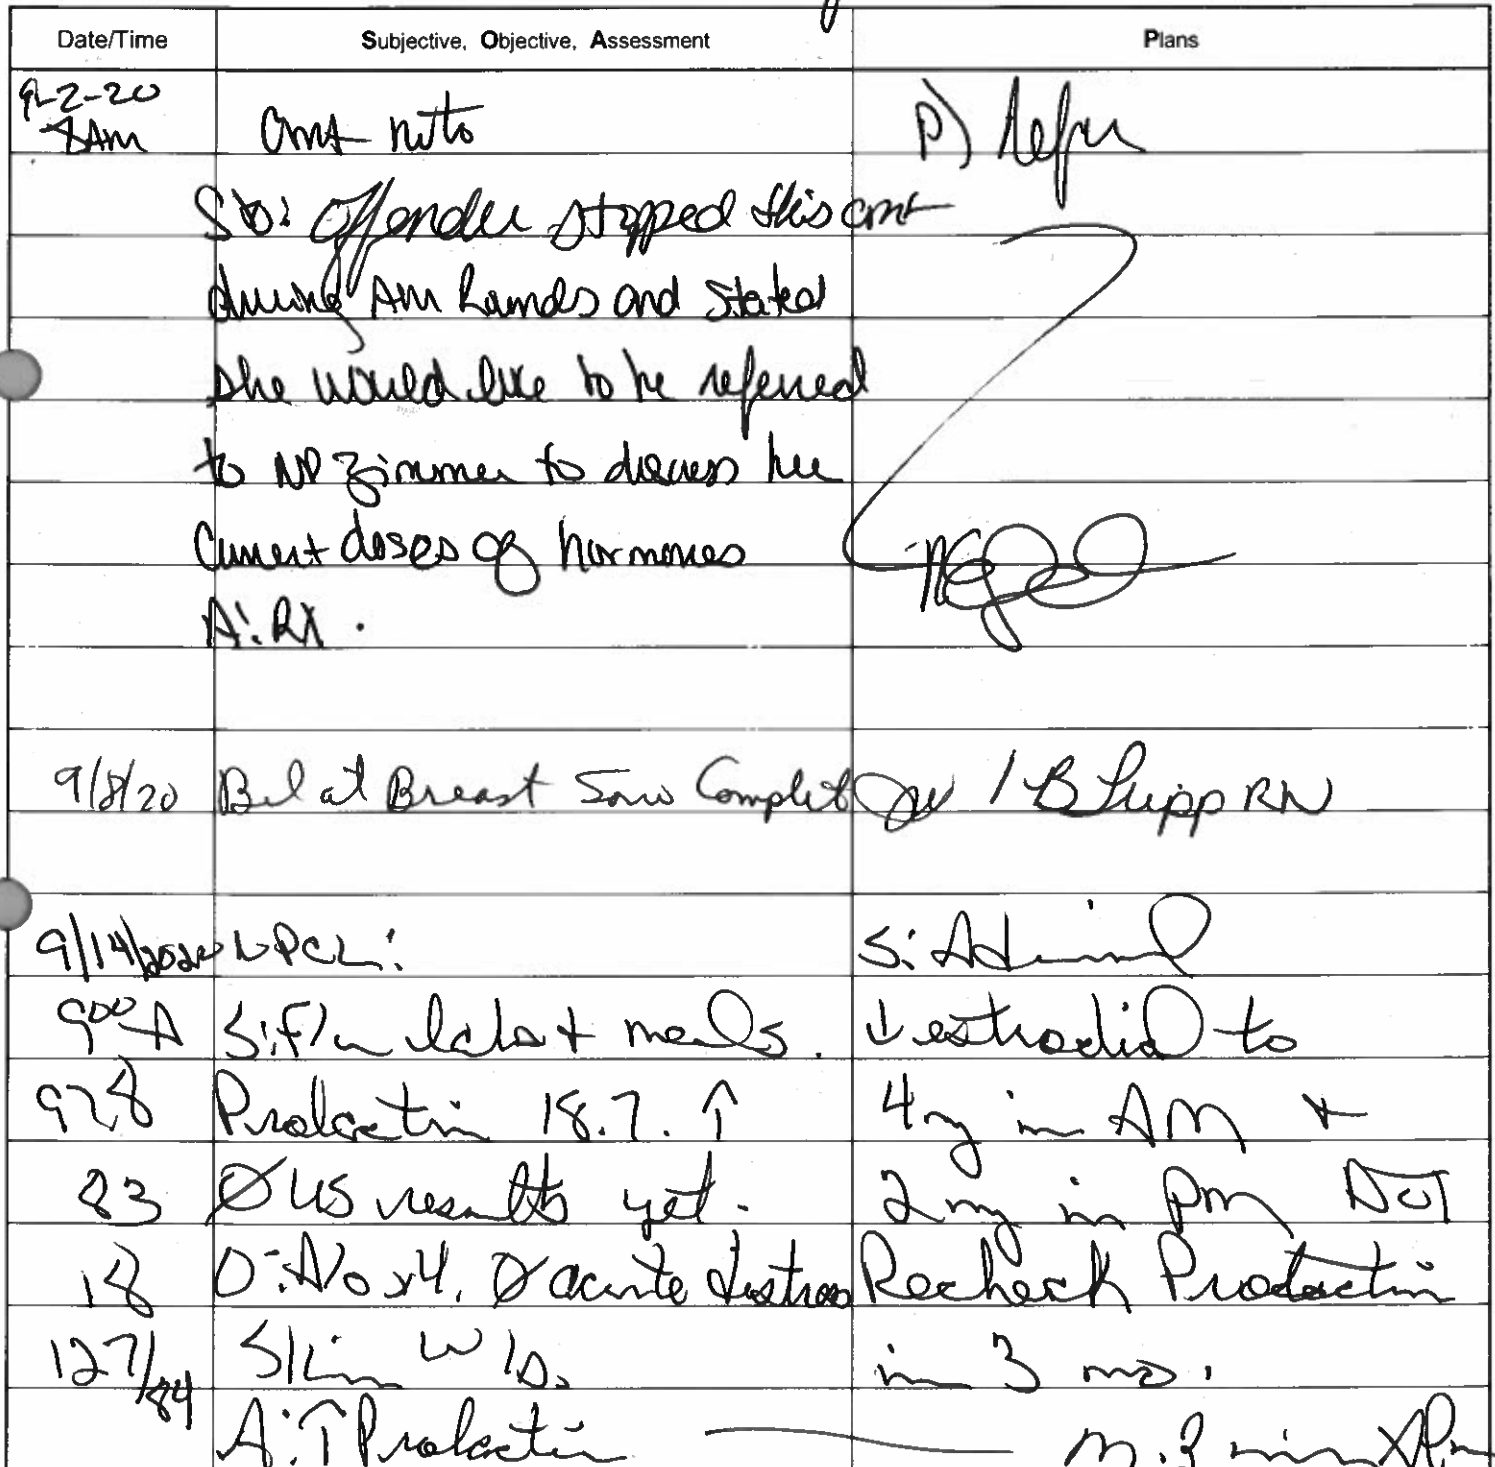 Date/Time Subjective, Objective, Assessment Plans
9-2-20 CMT note P) Refer
8AM
S/O: Offender stopped this CMT
during AM Rounds and stated
she would like to be referred
to NP Zimmer to discuss her
current doses of hormones
A: RX.
9/8/20 Bilat Breast Sono Complete / B Lipp RN
9/14/2020 NPCL:
900 A S: F/u labs + meds. ↓ estradiol to
978 Prolactin 18.7. ↑ 4mg in AM +
83 Ø US results yet. 2mg in pm DOT
18 O: A/O x4. Ø acute distress Recheck Prolactin
127/84 Skin W/D. in 3 mo.
A: ↑ Prolactin